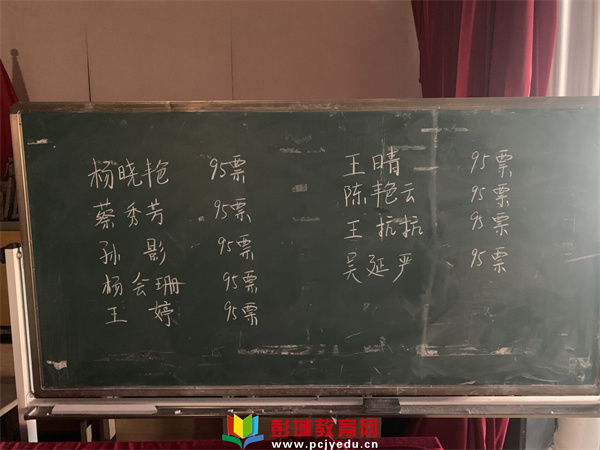 杨晓艳 95票
蔡秀芳 95票
孙影 95票
杨会珊 95票
王婷 95票
王晴 95票
陈艳云 95票
王杭杭 95票
吴延严 95票
彭城教育网
www.pcjyedu.cn